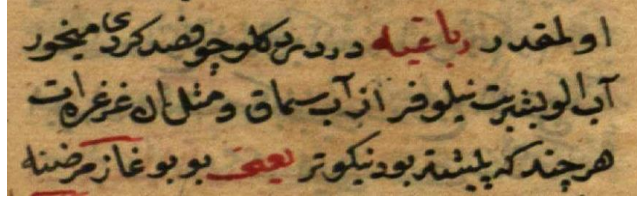 اولمقدر رباعیه درد در کلو چو فصد کردی میخور
آب الو بشربت نیلوفر از آب سماق و مثل ان غرغرات
هر چند که پیشتر بود نیکوتر یعنی بو بوغاز مرضنه